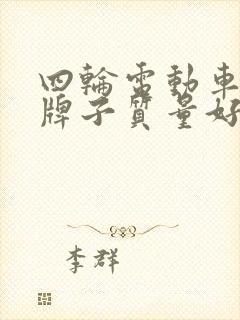 四輪電動車
牌子質量好
李群